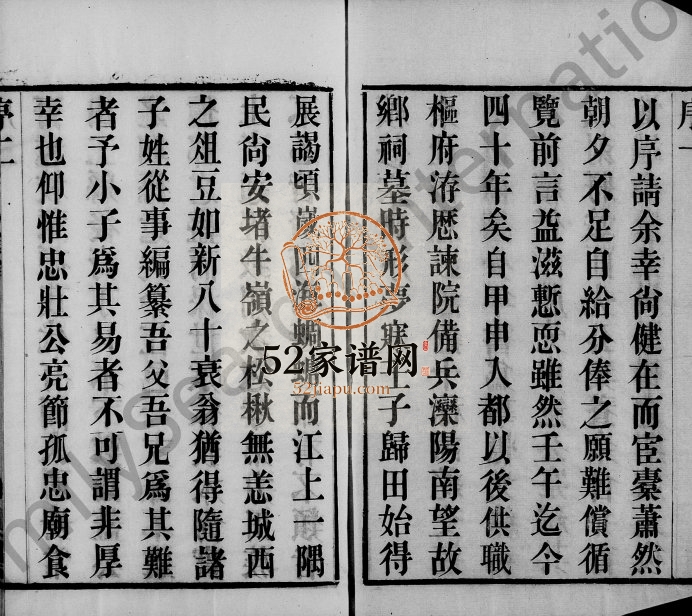 序一
以序請余幸尙健在而宦橐蕭然
朝夕不足自給分俸之願難償循
覽前言益滋慙恧雖然壬午迄今
四十年矣自甲申入都以後供職
樞府洊歷諫院備兵灤陽南望故
鄉祠墓時形夢寐壬子歸田始得
展謁頃歲四 而江上一隅
民尙安堵牛嶺之松楸無恙城西
之俎豆如新八十衰翁猶得隨諸
子姓從事編纂吾父吾兄爲其難
者予小子爲其易者不可謂非厚
幸也仰惟忠壯公亮節孤忠廟食
序二
52家谱网
52jiapu.com